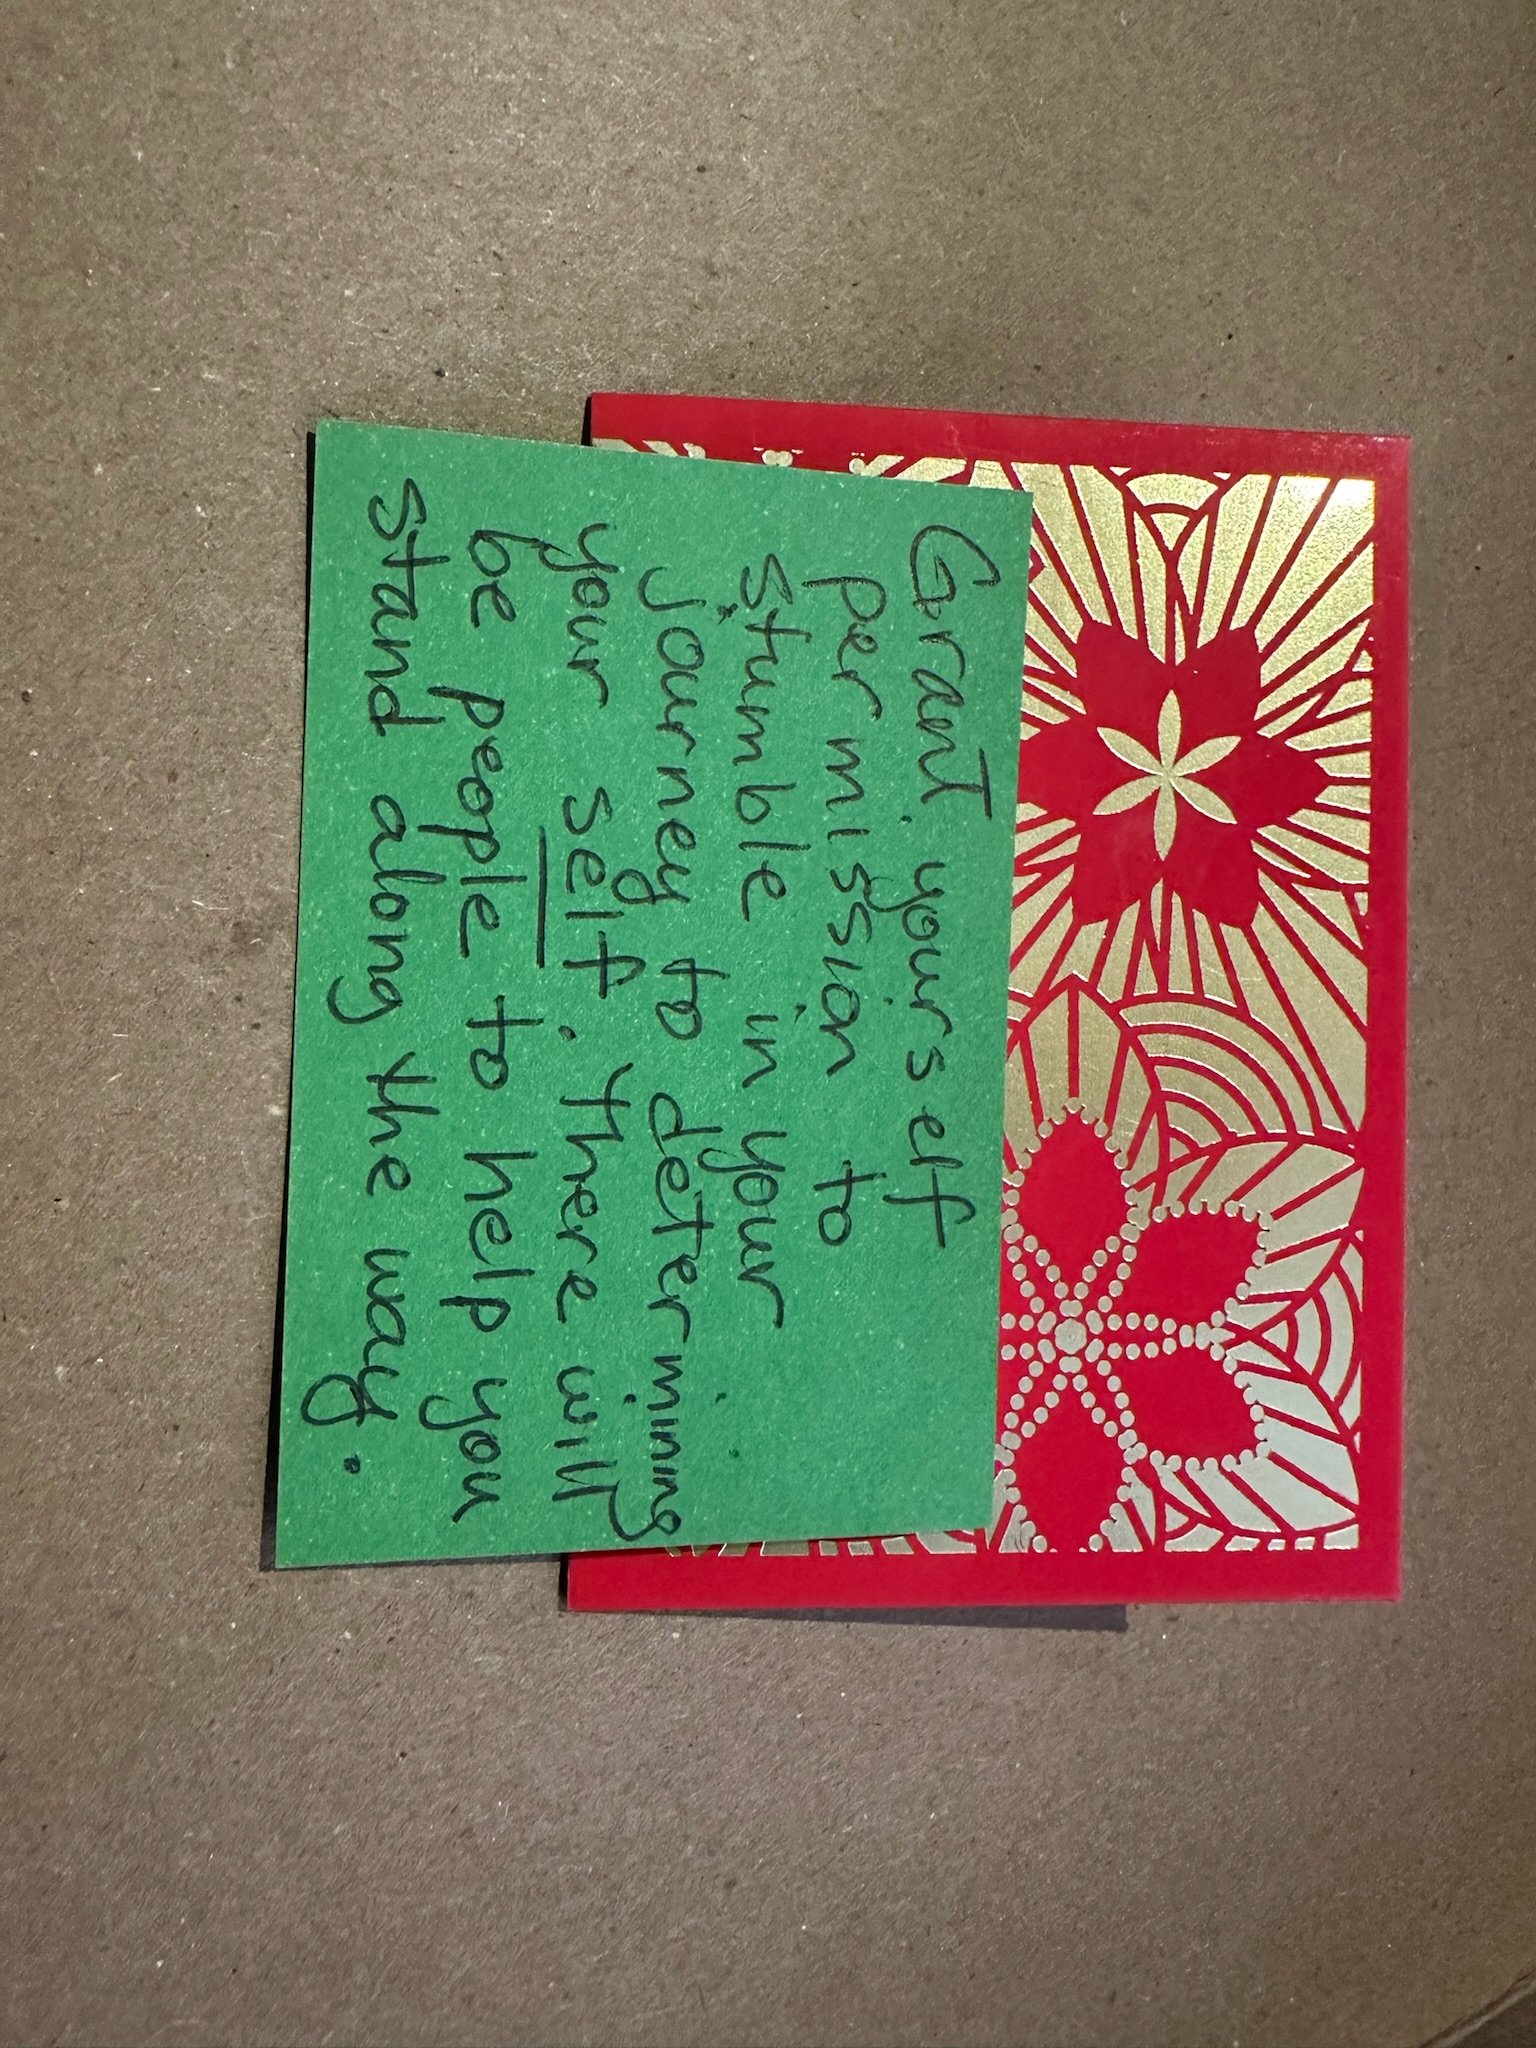 Grant yourself
permission to
stumble in your
journey to determining
your self. There will
be people to help you
stand along the way.